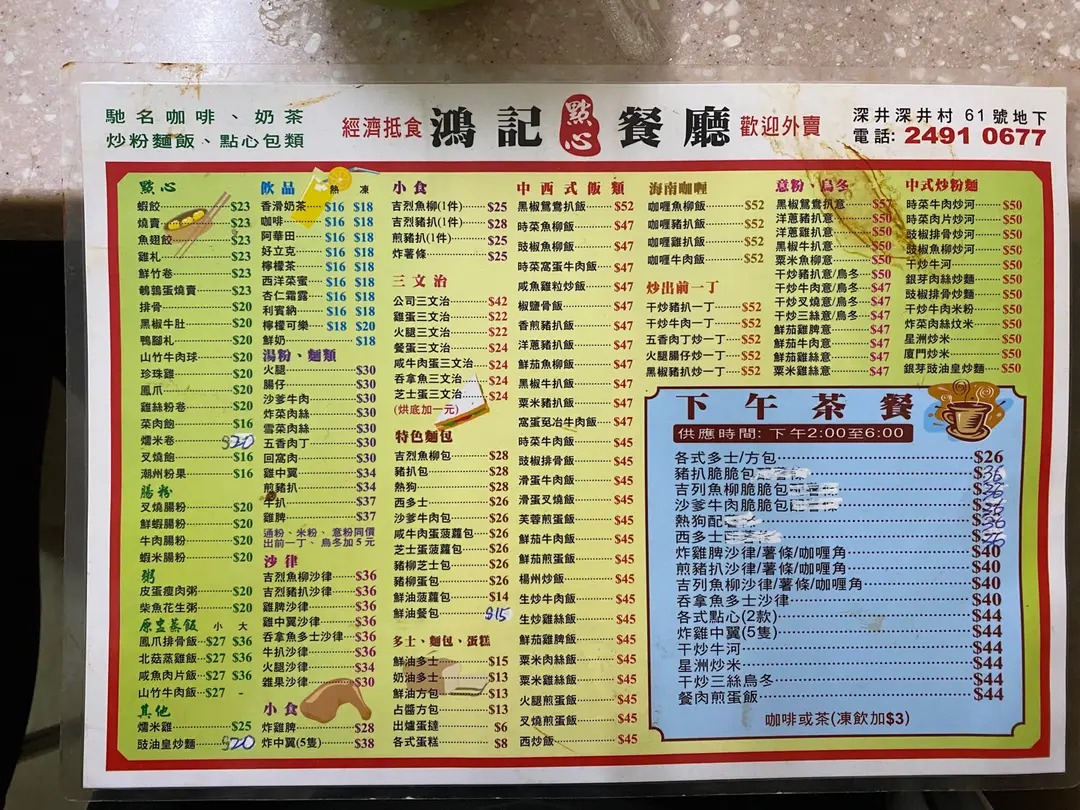 馳名咖啡、奶茶
炒粉麵飯、點心包類
經濟抵食
鴻記點心餐廳
歡迎外賣
深井深井村 61 號地下
電話: 2491 0677
點心
蝦餃 $23
燒賣 $23
魚翅餃 $23
雞札 $23
鮮竹卷 $23
鵪鶉蛋燒賣 $23
排骨 $20
黑椒牛肚 $20
鴨腳札 $20
山竹牛肉球 $20
珍珠雞 $20
鳳爪 $20
雞絲粉卷 $20
菜肉飽 $16
燶米卷 $20
叉燒飽 $16
潮州粉果 $16
腸粉
叉燒腸粉 $20
鮮蝦腸粉 $20
牛肉腸粉 $20
蝦米腸粉 $20
粥
皮蛋瘦肉粥 $20
柴魚花生粥 $20
原盅蒸飯 小 大
鳳爪排骨飯 $27 $36
北菇蒸雞飯 $27 $36
咸魚肉片飯 $27 $36
山竹牛肉飯 $27 -
其他
燶米雞 $25
豉油皇炒麵 $20
飲品 熱 凍
香滑奶茶 $16 $18
咖啡 $16 $18
阿華田 $16 $18
好立克 $16 $18
檸檬茶 $16 $18
西洋菜蜜 $16 $18
杏仁霜露 $16 $18
利賓納 $16 $18
檸檬可樂 $18 $20
鮮奶 $18
湯粉、麵類
火腿 $30
腸仔 $30
沙爹牛肉 $30
炸菜肉絲 $30
雪菜肉絲 $30
五香肉丁 $30
回窩肉 $30
雞中翼 $34
煎豬扒 $34
牛扒 $37
雞脾 $37
通粉、米粉、意粉同價
出前一丁、烏冬加 5 元
沙律
吉烈魚柳沙律 $36
吉烈豬扒沙律 $36
雞脾沙律 $36
雞中翼沙律 $36
吞拿魚多士沙律 $36
牛扒沙律 $36
火腿沙律 $34
雜果沙律 $30
小食
炸雞脾 $28
炸中翼(5隻) $38
小食
吉烈魚柳(1件) $25
吉烈豬扒(1件) $28
煎豬扒(1件) $25
炸薯條 $25
三文治
公司三文治 $42
雞蛋三文治 $22
火腿三文治 $22
餐蛋三文治 $24
咸牛肉蛋三文治 $24
吞拿魚三文治 $24
芝士蛋三文治 $24
(烘底加一元)
特色麵包
吉烈魚柳包 $28
豬扒包 $28
熱狗 $28
西多士 $26
沙爹牛肉包 $26
咸牛肉蛋菠蘿包 $26
芝士蛋菠蘿包 $26
豬柳芝士包 $26
豬柳蛋包 $26
鮮油菠蘿包 $14
鮮油餐包 $15
多士、麵包、蛋糕
鮮油多士 $15
奶油多士 $13
鮮油方包 $13
占醬方包 $13
出爐蛋撻 $6
各式蛋糕 $8
中西式飯類
黑椒鴛鴦扒飯 $52
時菜魚柳飯 $47
豉椒魚柳飯 $47
時菜窩蛋牛肉飯 $47
咸魚雞粒炒飯 $47
椒鹽骨飯 $47
香煎豬扒飯 $47
洋蔥豬扒飯 $47
鮮茄魚柳飯 $47
黑椒牛扒飯 $47
粟米豬扒飯 $47
窩蛋免冶牛肉飯 $47
時菜牛肉飯 $45
豉椒排骨飯 $45
滑蛋牛肉飯 $45
滑蛋叉燒飯 $45
芙蓉煎蛋飯 $45
鮮茄牛肉飯 $45
鮮茄煎蛋飯 $45
楊州炒飯 $45
生炒牛肉飯 $45
生炒雞絲飯 $45
鮮茄雞脾飯 $45
粟米肉絲飯 $45
粟米雞絲飯 $45
火腿煎蛋飯 $45
叉燒煎蛋飯 $45
西炒飯 $45
海南咖喱
咖喱魚柳飯 $52
咖喱豬扒飯 $52
咖喱雞扒飯 $52
咖喱牛肉飯 $52
炒出前一丁
干炒豬扒一丁 $52
干炒牛肉一丁 $52
五香肉丁炒一丁 $52
火腿腸仔炒一丁 $52
黑椒豬扒炒一丁 $52
意粉、烏冬
黑椒鴛鴦扒意 $57
洋蔥豬扒意 $50
洋蔥雞扒意 $50
黑椒牛扒意 $50
粟米魚柳意 $50
干炒豬扒意/烏冬 $50
干炒牛肉意/烏冬 $47
干炒叉燒意/烏冬 $47
干炒三絲意/烏冬 $47
鮮茄雞脾意 $47
鮮茄牛肉意 $47
鮮茄雞絲意 $47
粟米雞絲意 $47
中式炒粉麵
時菜牛肉炒河 $50
時菜肉片炒河 $50
豉椒排骨炒河 $50
豉椒魚柳炒河 $50
干炒牛河 $50
銀芽肉絲炒麵 $50
豉椒排骨炒麵 $50
干炒牛肉米粉 $50
炸菜肉絲炆米 $50
星洲炒米 $50
廈門炒米 $50
銀芽豉油皇炒麵 $50
下午茶餐
供應時間: 下午2:00至6:00
各式多士/方包 $26
豬扒脆脆包 $36
吉列魚柳脆脆包 $36
沙爹牛肉脆脆包 $36
熱狗配 $36
西多士 $36
炸雞脾沙律/薯條/咖喱角 $40
煎豬扒沙律/薯條/咖喱角 $40
吉列魚柳沙律/薯條/咖喱角 $40
吞拿魚多士沙律 $40
各式點心(2款) $44
炸雞中翼(5隻) $44
干炒牛河 $44
星洲炒米 $44
干炒三絲烏冬 $44
餐肉煎蛋飯 $44
咖啡或茶(凍飲加$3)